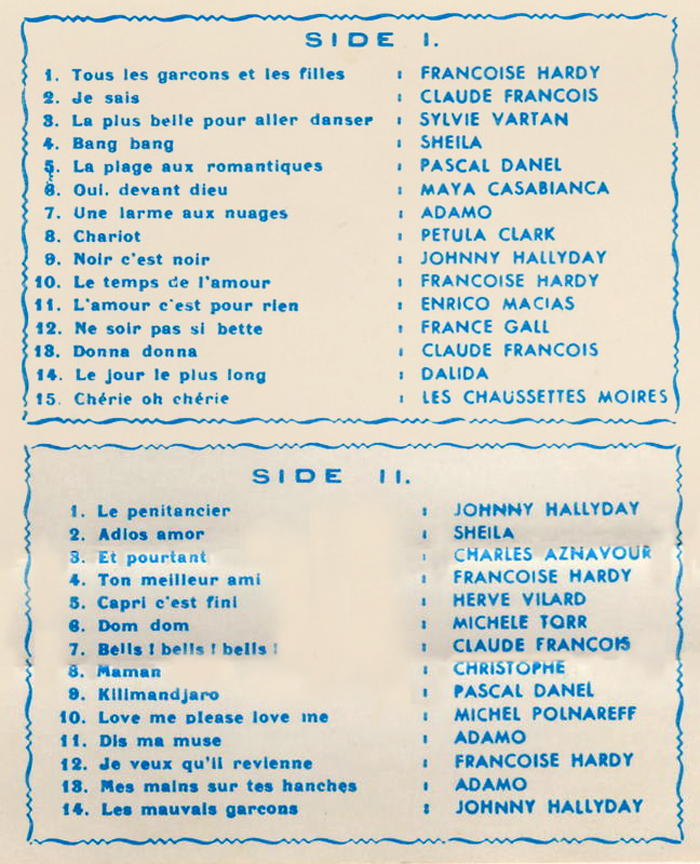 SIDE I.
1. Tous les garcons et les filles : FRANCOISE HARDY
2. Je sais : CLAUDE FRANCOIS
3. La plus belle pour aller danser : SYLVIE VARTAN
4. Bang bang : SHEILA
5. La plage aux romantiques : PASCAL DANEL
6. Oui. devant dieu : MAYA CASABIANCA
7. Une larme aux nuages : ADAMO
8. Chariot : PETULA CLARK
9. Noir c'est noir : JOHNNY HALLYDAY
10. Le temps de l'amour : FRANCOISE HARDY
11. L'amour c'est pour rien : ENRICO MACIAS
12. Ne soir pas si bette : FRANCE GALL
13. Donna donna : CLAUDE FRANCOIS
14. Le jour le plus long : DALIDA
15. Chérie oh chérie : LES CHAUSSETTES MOIRES
SIDE II.
1. Le penitancier : JOHNNY HALLYDAY
2. Adios amor : SHEILA
3. Et pourtant : CHARLES AZNAVOUR
4. Ton meilleur ami : FRANCOISE HARDY
5. Capri c'est fini : HERVE VILARD
6. Dom dom : MICHELE TORR
7. Bells ! bells ! bells ! : CLAUDE FRANCOIS
8. Maman : CHRISTOPHE
9. Kilimandjaro : PASCAL DANEL
10. Love me please love me : MICHEL POLNAREFF
11. Dis ma muse : ADAMO
12. Je veux qu'il revienne : FRANCOISE HARDY
13. Mes mains sur tes hanches : ADAMO
14. Les mauvais garcons : JOHNNY HALLYDAY